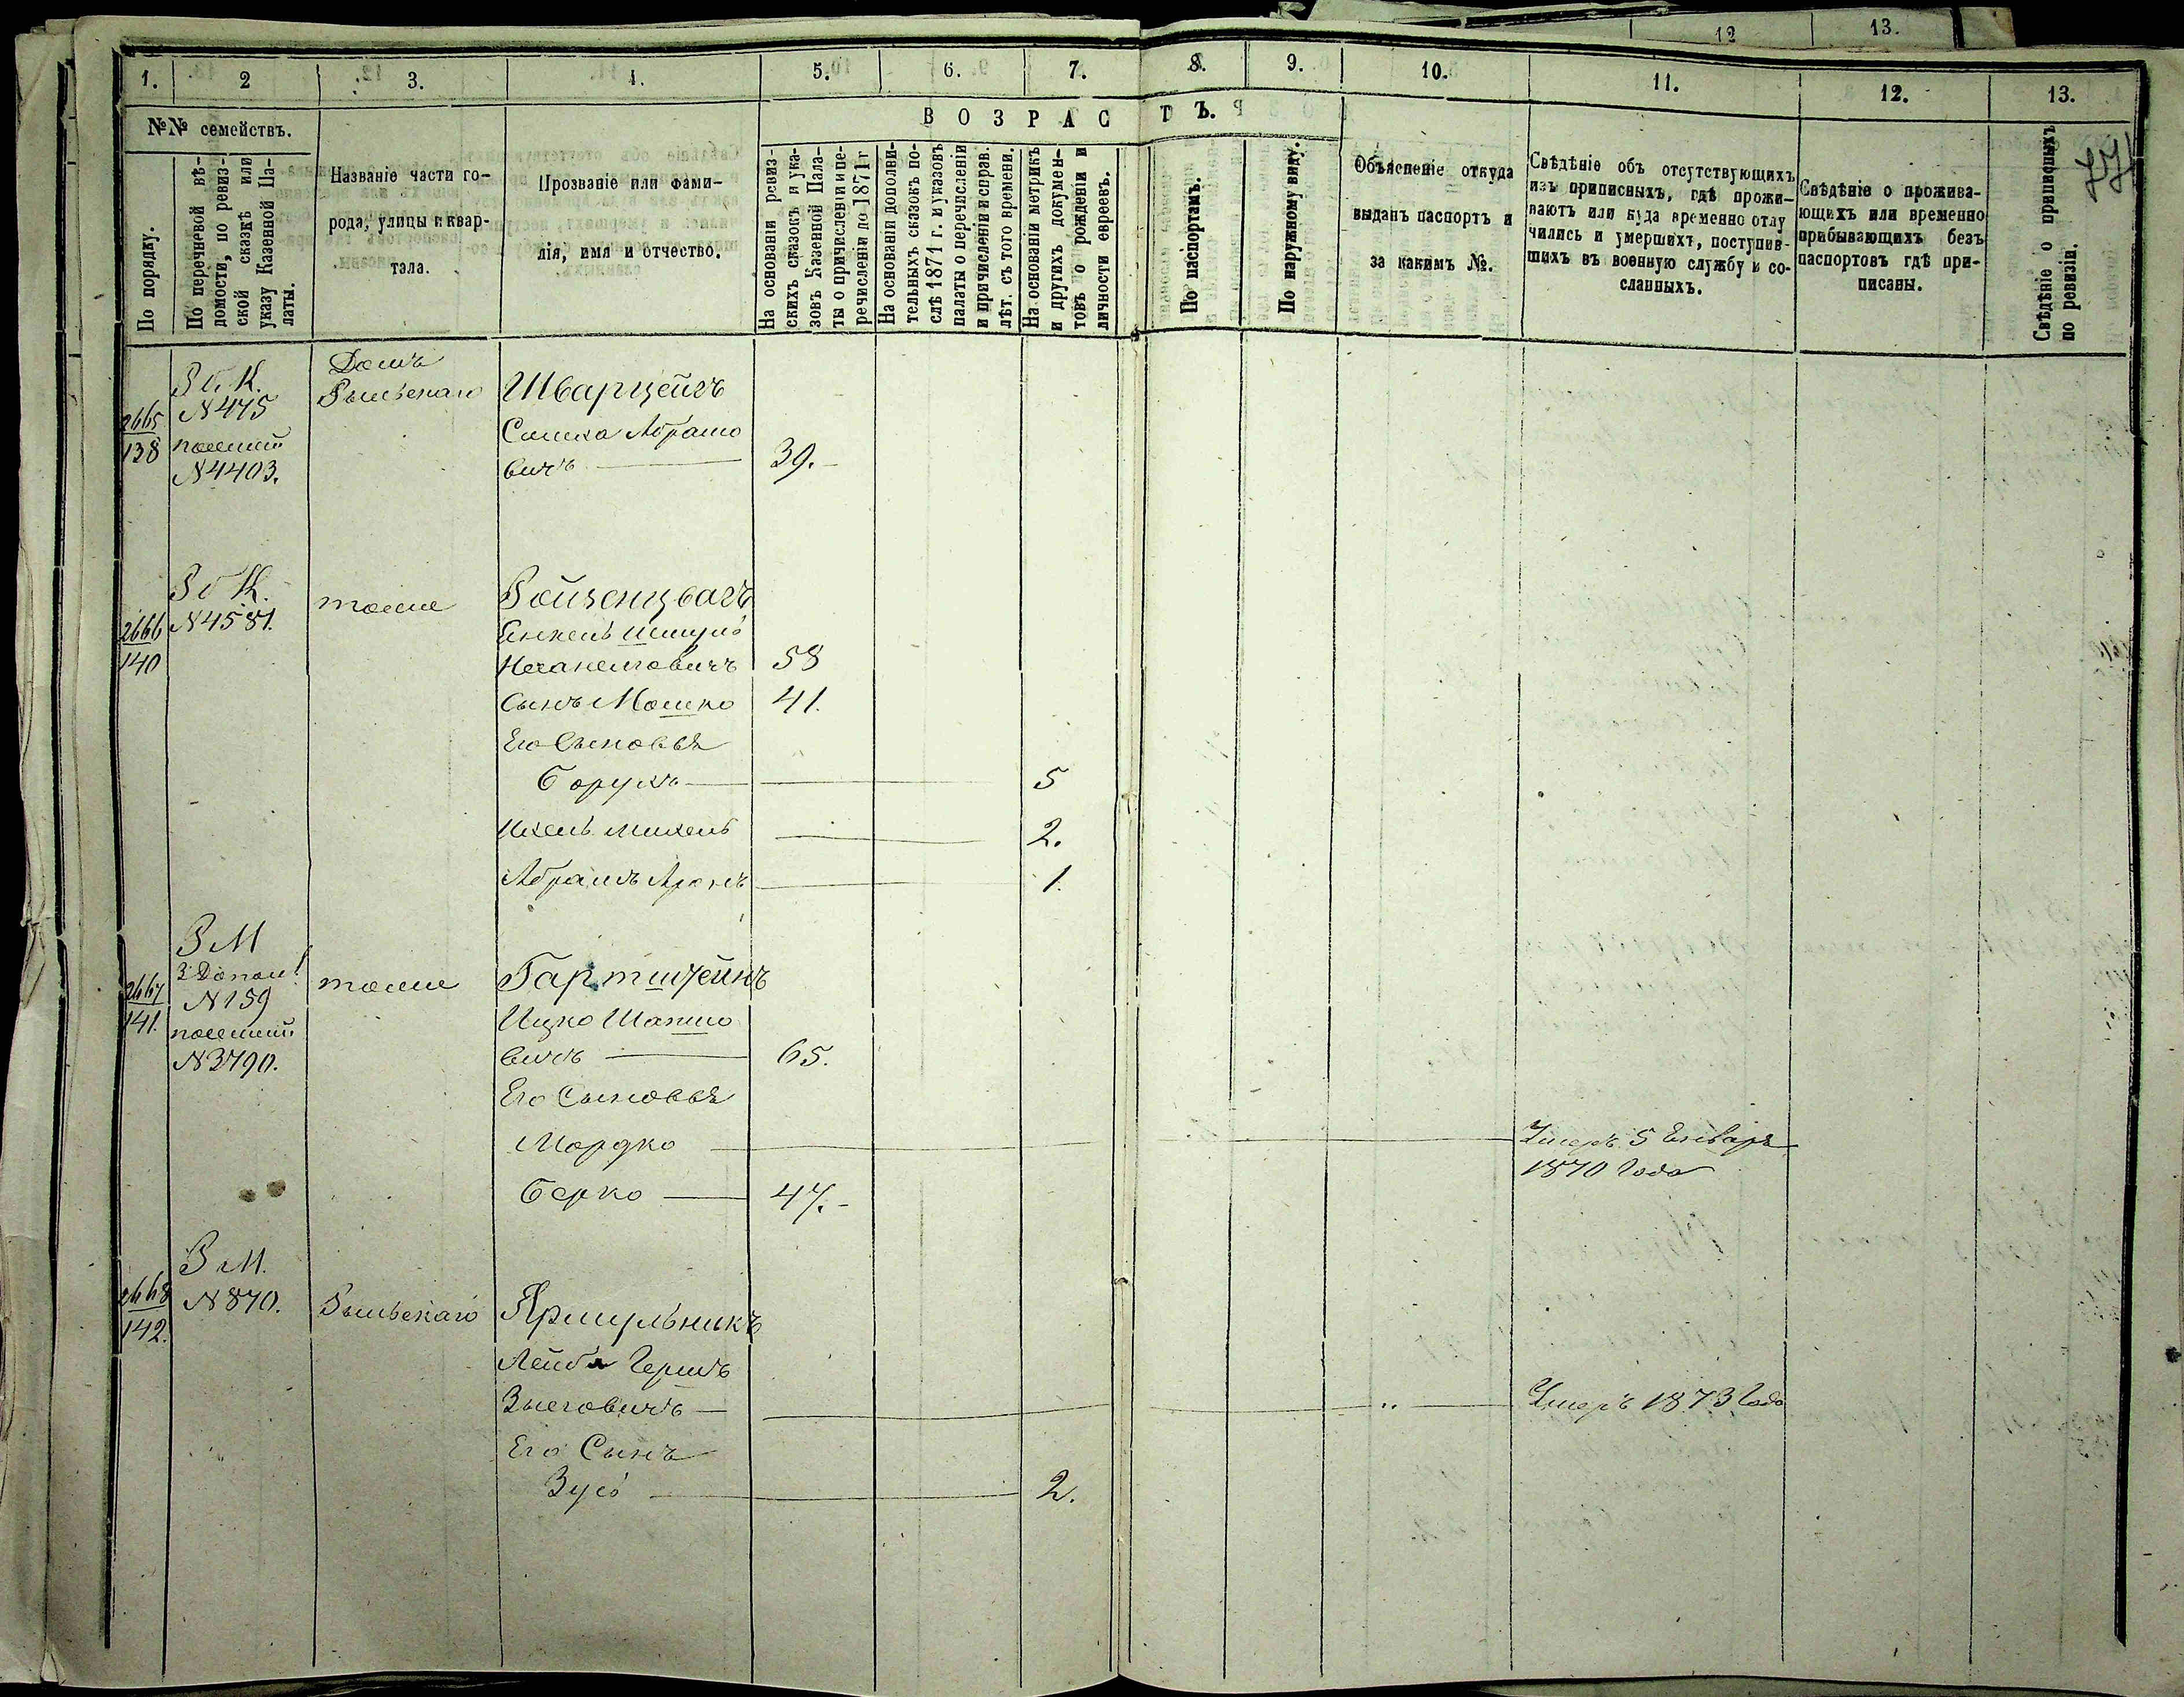 12 13.
1. 2 3. 4. 5. 6. 7. 8. 9. 10. 11. 12. 13.
№№ семействъ.
По порядку.
По перечневой вѣ-
домости, по ревиз-
ской сказкѣ или
указу Казенной Па-
латы.
Названіе части го-
рода, улицы и квар-
тала.
Прозваніе или фами-
лія, имя и отчество.
ВОЗРАСТЪ.
На основаніи ревиз-
скихъ сказокъ и ука-
зовъ Казенной Пала-
ты о причисленіи и пе-
речисленіи по 1871 г
На основаніи дополни-
тельныхъ сказокъ по-
слѣ 1871 г. и указовъ
палаты о перечисленіи
и причисленіи и справ.
лѣт. съ того времени.
На основаніи метрикъ
и другихъ докумен-
товъ о рожденіи и
личности евреевъ.
По паспортамъ.
По наружному виду.
Объясненіе откуда
выданъ паспортъ и
за какимъ №.
Свѣдѣніе объ отсутствующихъ
изъ приписныхъ, гдѣ прожи-
ваютъ или куда временно отлу
чились и умершихъ, поступив-
шихъ въ военную службу и со-
сланныхъ.
Свѣдѣніе о прожива-
ющихъ или временно
прибывающихъ безъ
паспортовъ гдѣ при-
писаны.
Свѣдѣніе о приписныхъ
по ревизіи.
2665
138
N 475
N 4403.
Домъ
Шварцейгъ
Симха Абрамо
вичъ 39.
2666
140
N 4581.
тоже
Ройзенцвагъ
Янкель Шмуль
58
Сынъ Мошко 41.
Его Сыновья
Борухъ 5
Ихель Михель 2.
Абрамъ Аронъ 1.
2667
141.
Р М
N 159
N 3790.
тоже
Гартштейнъ
Ицко Шапшо
вичъ 65.
Его Сыновья
Мордко Умеръ 5 Енваря
1870 Года
Берко 47.
2668
142.
Р М.
N 870.
Ярмульникъ
Лейба Гершъ
Зысговичъ Умеръ 1873 Года
Его Сынъ
Зусь 2.